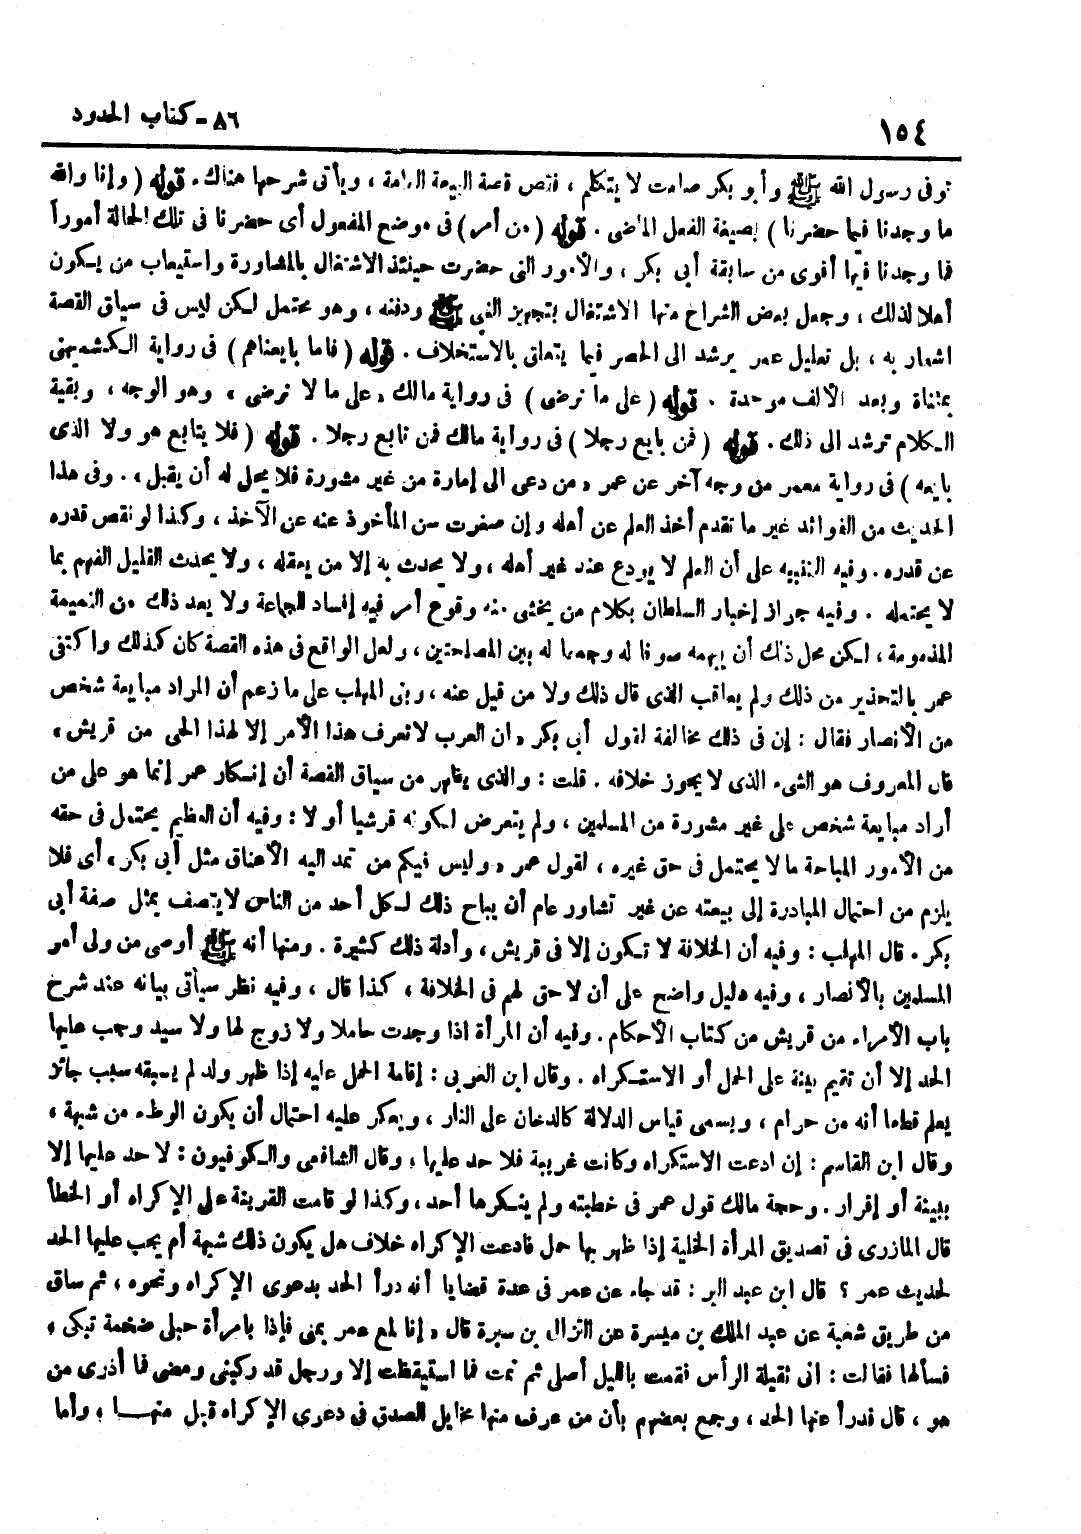 ١٥٤ ٨٦ - كتاب الحدود
توفى رسول الله ﷺ وأبو بكر صامت لا يتكلم ، فنص قصة البيعة العامة ، ويأتى شرحها هناك . قوله ( وإنا والله
ما وجدنا فيما حضرنا ) بصيغة الفعل الماضى . قوله ( من أمر ) فى موضع المفعول أى حضرنا فى تلك الحالة أموراً
فما وجدنا فيها أقوى من سابقة أبى بكر ، والأمور التى حضرت حينئذ الاشتغال بالمشاورة واستيعاب من يكون
أهلا لذلك ، وجعل بعض الشراح منها الاشتغال بتجهيز النبي ﷺ ودفنه ، وهو محتمل لكن ليس فى سياق القصة
اشعار به ، بل تعليل عمر يرشد الى الحصر فيما يتعلق بالاستخلاف . قوله ( فاما بايعناهم ) فى رواية الكشميهنى
بمثناة وبعد الألف موحدة . قوله ( على ما نرضى ) فى رواية مالك « على ما لا نرضى » وهو الوجه ، وبقية
الكلام ترشد الى ذلك . قوله ( فمن بايع رجلا ) فى رواية مالك فمن تابع رجلا . قوله ( فلا يتابع هو ولا الذى
بايعه ) فى رواية معمر من وجه آخر عن عمر « من دعى الى إمارة من غير مشورة فلا يحل له أن يقبل » . وفى هذا
الحديث من الفوائد غير ما تقدم أخذ العلم عن أهله وإن صغرت سن المأخوذ عنه عن الآخذ ، وكذا لو نقص قدره
عن قدره . وفيه التنبيه على أن العلم لا يودع عند غير أهله ، ولا يحدث به إلا من يعقله ، ولا يحدث القليل الفهم بما
لا يحتمله . وفيه جواز إخبار السلطان بكلام من يخشى منه وقوع أمر فيه إفساد للجماعة ولا يعد ذلك من النميمة
المذمومة ، لكن محل ذلك أن يبهمه صونا له وجمعا له بين المصلحتين ، ولعل الواقع فى هذه القصة كان كذلك واكتفى
عمر بالتحذير من ذلك ولم يعاقب الذى قال ذلك ولا من قيل عنه ، وبنى المهلب على ما زعم أن المراد مبايعة شخص
من الأنصار فقال : إن فى ذلك مخالفة لقول أبى بكر « ان العرب لا تعرف هذا الأمر إلا لهذا الحى من قريش »
فان المعروف هو الشىء الذى لا يجوز خلافه . قلت : والذى يظهر من سياق القصة أن إنكار عمر إنما هو على من
أراد مبايعة شخص على غير مشورة من المسلمين ، ولم يتعرض لكونه قرشيا أو لا : وفيه أن العظيم يحتمل فى حقه
من الأمور المباحة ما لا يحتمل فى حق غيره ، لقول عمر « وليس فيكم من تمد اليه الأعناق مثل أبى بكر » أى فلا
يلزم من احتمال المبادرة إلى بيعته عن غير تشاور عام أن يباح ذلك لكل أحد من الناس لا يتصف بمثل صفة أبى
بكر . قال المهلب : وفيه أن الخلافة لا تكون إلا فى قريش ، وأدلة ذلك كثيرة . ومنها أنه ﷺ أوصى من ولى أمر
المسلمين بالأنصار ، وفيه دليل واضح على أن لا حق لهم فى الخلافة ، كذا قال ، وفيه نظر سيأتى بيانه عند شرح
باب الأمراء من قريش من كتاب الأحكام . وفيه أن المرأة اذا وجدت حاملا ولا زوج لها ولا سيد وجب عليها
الحد إلا أن تقيم بينة على الحمل أو الاستكراه . وقال ابن العربى : إقامة الحمل عليه إذا ظهر ولد لم يسبقه سبب جائز
يعلم قطعا أنه من حرام ، ويسمى قياس الدلالة كالدخان على النار ، ويعكر عليه احتمال أن يكون الوطء من شبهة ،
وقال ابن القاسم : إن ادعت الاستكراه وكانت غريبة فلا حد عليها ، وقال الشافعى والكوفيون : لا حد عليها إلا
ببينة أو إقرار . وحجة مالك قول عمر فى خطبته ولم ينكرها أحد ، وكذا لو قامت القرينة على الإكراه أو الخطأ
قال المازرى فى تصديق المرأة الخلية إذا ظهر بها حمل فادعت الإكراه خلاف هل يكون ذلك شبهة أم يجب عليها الحد
لحديث عمر ؟ قال ابن عبد البر : قد جاء عن عمر فى عدة قضايا أنه درأ الحد بدعوى الإكراه ونحوه ، ثم ساق
من طريق شعبة عن عبد الملك بن ميسرة عن النزال بن سبرة قال « إنا لمع عمر بمنى فإذا بامرأة حبلى ضخمة تبكى ،
فسألها فقالت : انى ثقيلة الرأس فقمت بالليل أصلى ثم نمت فما استيقظت إلا ورجل قد ركبنى ومضى فما أدرى من
هو ، قال فدرأ عنها الحد ، وجمع بعضهم بأن من عرف منها مخايل الصدق فى دعوى الإكراه قبل منها ، وأما